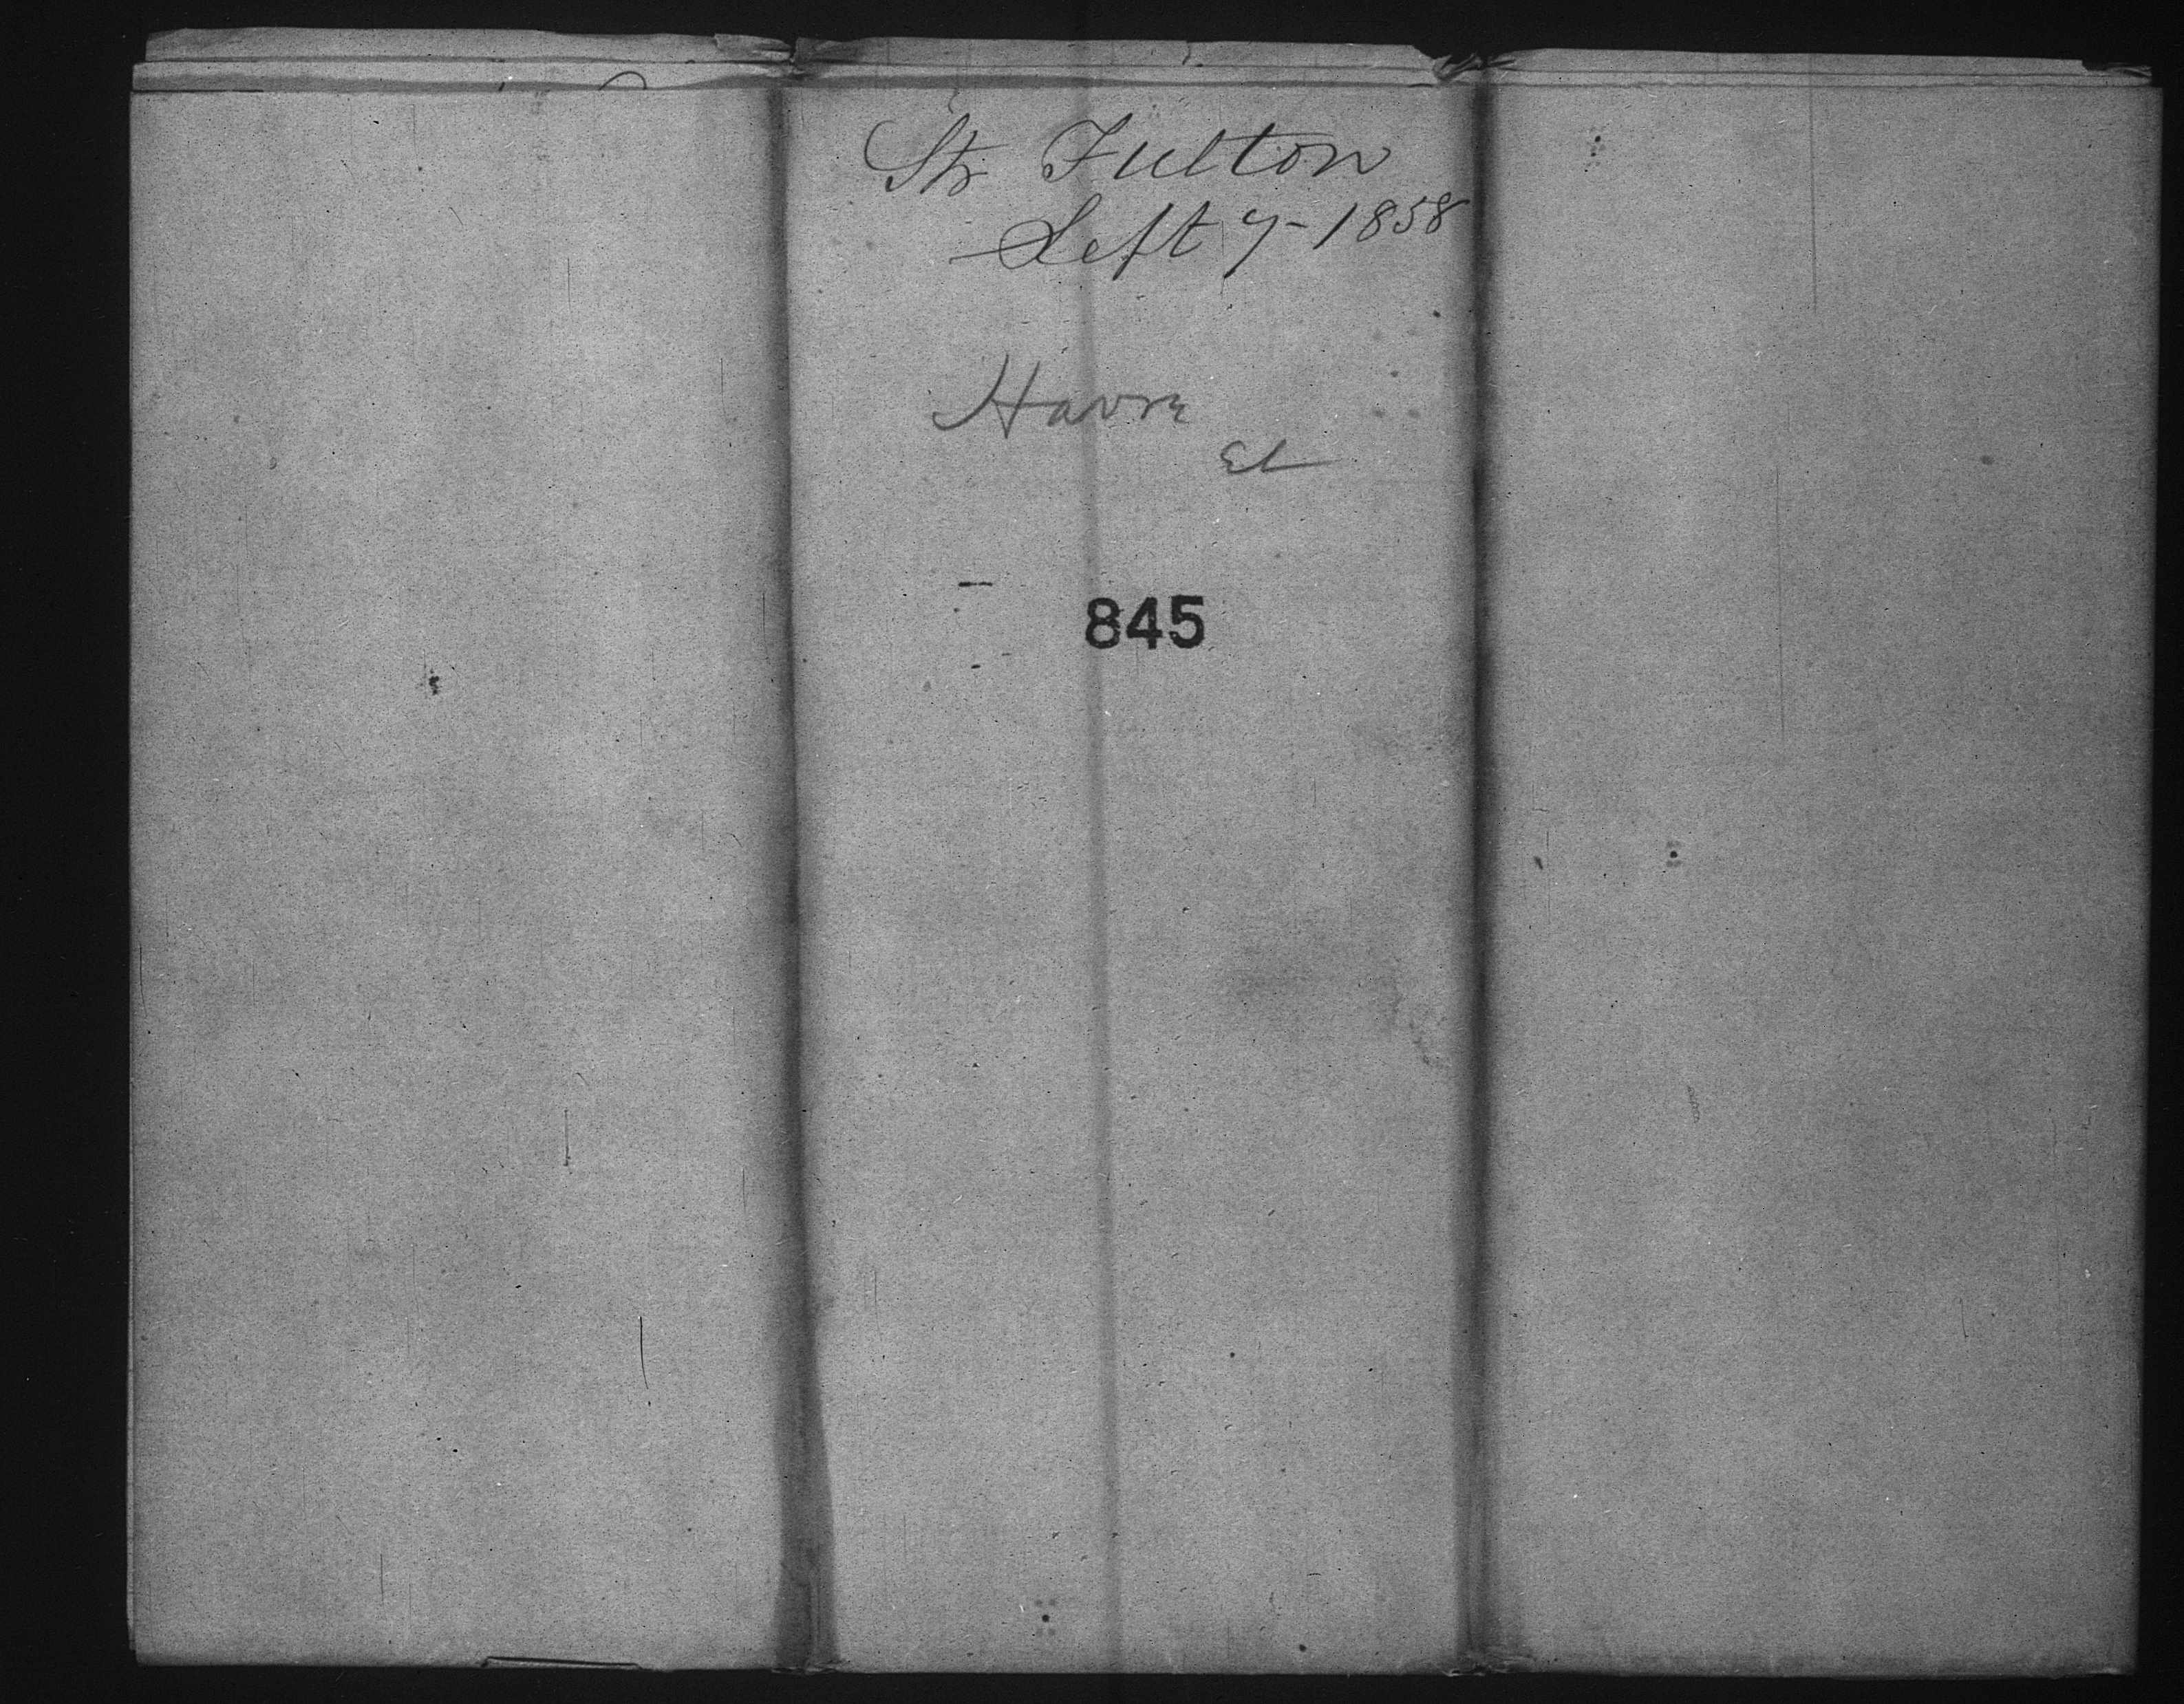 Str Fulton
Sept 7-1858
Havre
El
845